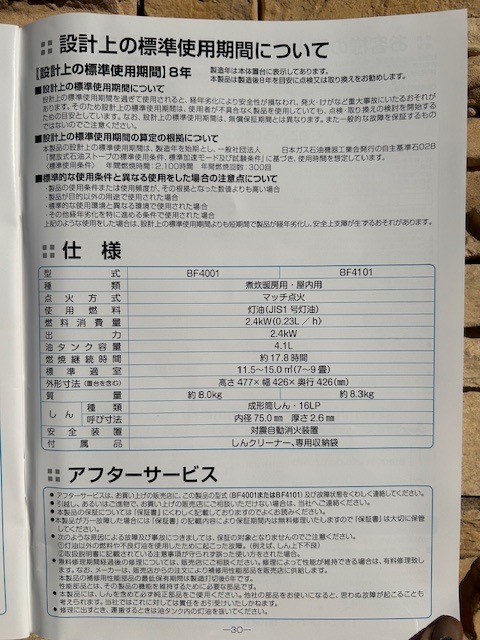 設計上の標準使用期間について
【設計上の標準使用期間】8年
製造年は本体置台に表示してあります。
本製品は製造後8年を目安に点検又は取り換えをお勧めします。
■設計上の標準使用期間について
設計上の標準使用期間を過ぎて使用されると、経年劣化により安全性が損なわれ、発火・けがなど重大事故にいたるおそれが
あります。そのため設計上の標準使用期間は、使用者が不具合なく製品を使用していても、点検・取り換えの検討を開始する
ための目安としています。なお、設計上の標準使用期間は、無償保証期間とは異なります。また一般的な故障を保証するもの
ではないのでご注意ください。
■設計上の標準使用期間の算定の根拠について
本製品の設計上の標準使用期間は、製造年を始期とし、一般社団法人 日本ガス石油機器工業会発行の自主基準石028
「開放式石油ストーブの標準使用条件、標準加速モード及び試験条件」に基づき、使用時間を想定しています。
〈標準使用条件〉 年間燃焼時間:2,100時間 年間燃焼回数:300回
■標準的な使用条件と異なる使用をした場合の注意点について
・製品の使用条件または使用頻度が、その根拠となった数値よりも高い場合
・製品が目的以外の用途で使用された場合
・標準的な使用環境と異なる環境で使用された場合
・その他経年劣化を特に進める条件で使用された場合
上記のような使用をした場合は、設計上の標準使用期間よりも短期間で製品が経年劣化し、安全上支障が生ずるおそれがあります。
仕様
型式 BF4001 BF4101
種類 煮炊暖房用・屋内用
点火方式 マッチ点火
使用燃料 灯油(JIS1号灯油)
燃料消費量 2.4kW(0.23L/h)
出力 2.4kW
油タンク容量 4.1L
燃焼継続時間 約17.8時間
標準適室 11.5〜15.0㎡(7〜9畳)
外形寸法(置台を含む) 高さ477×幅426×奥行426(㎜)
質量 約8.0kg 約8.3kg
しん 種類 成形筒しん・16LP
呼び寸法 内径75.0㎜ 厚さ2.6㎜
安全装置 対震自動消火装置
付属品 しんクリーナー、専用収納袋
アフターサービス
●アフターサービスは、お買い上げの販売店に、この製品の型式(BF4001またはBF4101)及び故障状態をくわしく連絡してください。
●引越し、あるいはご進物で、お買い上げの販売店にご相談いただけない場合は、当社へご連絡ください。
●本製品の保証については「保証書」にくわしく記載しておりますのでよくお読みください。
●本製品が万一故障した場合には「保証書」の記載内容により保証期間内は無料修理いたしますので「保証書」は大切に保管
してください。
●次のような原因による故障及び事故につきましては、保証の対象となりませんのでご注意ください。
①灯油以外の燃料や不良灯油を使用したために起こった故障。(例えば、しん上下不良)
②取扱説明書に記載されている注意事項が守られず誤った使い方をされた場合。
●無料修理期間経過後の修理については、販売店にご相談ください。修理によって性能が維持できる場合は、有料修理致し
ます。なお、メーカーは、販売店からの注文により補修用性能部品を販売店に供給します。
●本製品の補修用性能部品の最低保有期間は製造打切後6年です。
性能部品とは、その製品の機能を維持するために必要な部品です。
●本製品には、しんを含めて必ず純正部品をご使用ください。他社の部品をお使いになると、思わぬ故障が起こることも
考えられます。当社ではこれに対しては責任をお受けいたしかねます。
●修理に出すとき、運搬するときは油タンク内の灯油を抜いてください。
—30—